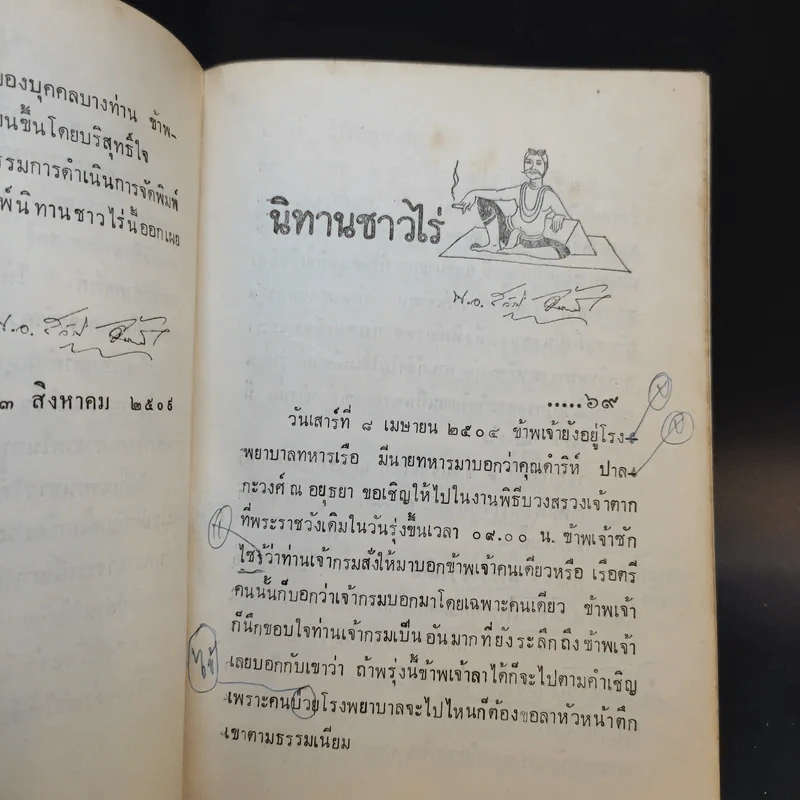 ของบุคคลบางท่าน ข้าพ-
ยนขึ้นโดยบริสุทธิ์ใจ
รรมการดำเนินการจัดพิมพ์
พ์นิทานชาวไร่นี้ออกเผย
พ.อ.
๓ สิงหาคม ๒๕๐๙
นิทานชาวไร่
พ.อ.
.....๖๙
วันเสาร์ที่ ๘ เมษายน ๒๕๐๔ ข้าพเจ้ายังอยู่โรง-
พยาบาลทหารเรือ มีนายทหารมาบอกว่าคุณดำริห์ ปาล-
กะวงศ์ ณ อยุธยา ขอเชิญให้ไปในงานพิธีบวงสรวงเจ้าตาก
ที่พระราชวังเดิมในวันรุ่งขึ้นเวลา ๐๙.๐๐ น. ข้าพเจ้าซัก
ไซร้ว่าท่านเจ้ากรมสั่งให้มาบอกข้าพเจ้าคนเดียวหรือ เรือตรี
คนนั้นก็บอกว่าเจ้ากรมบอกมาโดยเฉพาะคนเดียว ข้าพเจ้า
ก็นึกขอบใจท่านเจ้ากรมเป็นอันมากที่ยังระลึกถึงข้าพเจ้า
เลยบอกกับเขาว่า ถ้าพรุ่งนี้ข้าพเจ้าลาได้ก็จะไปตามคำเชิญ
เพราะคนป่วยโรงพยาบาลจะไปไหนก็ต้องขอลาหัวหน้าตึก
เขาตามธรรมเนียม